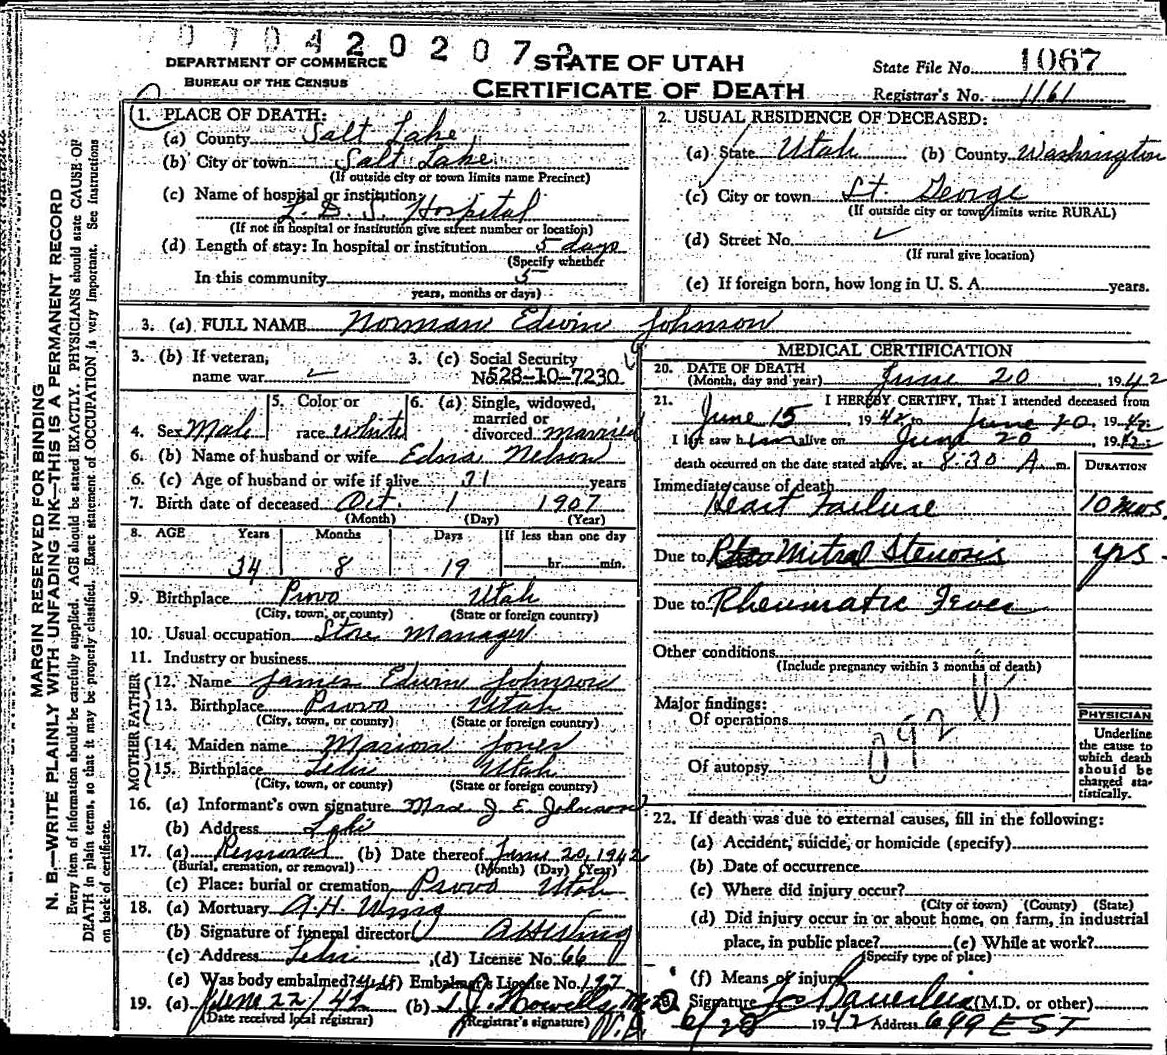 0 7 0 4 2 0 2 0 7 2
DEPARTMENT OF COMMERCE
BUREAU OF THE CENSUS
STATE OF UTAH
CERTIFICATE OF DEATH
State File No. 1067
Registrar's No. 1161
MARGIN RESERVED FOR BINDING
N. B.—WRITE PLAINLY WITH UNFADING INK—THIS IS A PERMANENT RECORD
Every item of information should be carefully supplied. AGE should be stated EXACTLY. PHYSICIANS should state CAUSE OF
DEATH in plain terms, so that it may be properly classified. Exact statement of OCCUPATION is very important. See instructions
on back of certificate.
1. PLACE OF DEATH:
(a) County Salt Lake
(b) City or town Salt Lake
(If outside city or town limits name Precinct)
(c) Name of hospital or institution:
L. D. S. Hospital
(If not in hospital or institution give street number or location)
(d) Length of stay: In hospital or institution 5 days
(Specify whether
In this community 5
years, months or days)
2. USUAL RESIDENCE OF DECEASED:
(a) State Utah (b) County Washington
(c) City or town St. George
(If outside city or town limits write RURAL)
(d) Street No. ✓
(If rural give location)
(e) If foreign born, how long in U. S. A. years.
3. (a) FULL NAME Norman Edwin Johnson
3. (b) If veteran, name war ✓
3. (c) Social Security No. 528-10-7230
4. Sex Male
5. Color or race white
6. (a) Single, widowed, married or divorced married
6. (b) Name of husband or wife Edna Nelson
6. (c) Age of husband or wife if alive 31 years
7. Birth date of deceased Oct. 1 1907
(Month) (Day) (Year)
8. AGE Years Months Days If less than one day
34 8 19 hr. min.
9. Birthplace Provo Utah
(City, town, or county) (State or foreign country)
10. Usual occupation Store Manager
11. Industry or business
FATHER
12. Name James Edwin Johnson
13. Birthplace Provo Utah
(City, town, or county) (State or foreign country)
MOTHER
14. Maiden name Jones
15. Birthplace Lehi Utah
(City, town, or county) (State or foreign country)
16. (a) Informant's own signature Mrs J. E. Johnson
(b) Address Lehi
17. (a) Removal (b) Date thereof June 20, 1942
(Burial, cremation, or removal) (Month) (Day) (Year)
(c) Place: burial or cremation Provo Utah
18. (a) Mortuary A. H. Wing
(b) Signature of funeral director A H Wing
(c) Address Lehi (d) License No. 66
(e) Was body embalmed? yes Embalmer's License No. 197
19. (a) June 22/42 (b) T. J. Howells M.D.
(Date received local registrar) (Registrar's signature)
MEDICAL CERTIFICATION
20. DATE OF DEATH
(Month, day and year) June 20, 1942
21. I HEREBY CERTIFY, That I attended deceased from
June 15, 1942 to June 20, 1942
I last saw him alive on June 20, 1942
death occurred on the date stated above, at 8:30 A. m.
DURATION
Immediate cause of death
Heart Failure 10 mos.
Due to Mitral Stenosis yrs.
Due to Rheumatic Fever
Other conditions
(Include pregnancy within 3 months of death)
Major findings:
Of operations
092 b
Of autopsy
PHYSICIAN
Underline
the cause to
which death
should be
charged sta-
tistically.
22. If death was due to external causes, fill in the following:
(a) Accident, suicide, or homicide (specify)
(b) Date of occurrence
(c) Where did injury occur?
(City or town) (County) (State)
(d) Did injury occur in or about home, on farm, in industrial
place, in public place? (e) While at work?
(Specify type of place)
(f) Means of injury
Signature (M.D. or other)
1942 Address 699 E S T